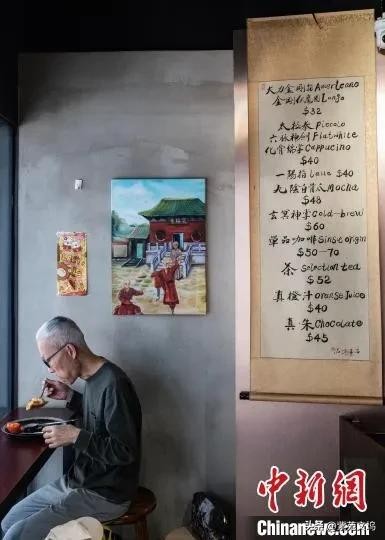 大力金剛指 Americano
Lungo
$32
太极拳 Piccolo
六脉神剑 Flatwhite
化骨绵掌 Cappucino
$40
一陽指 Latte $40
九陰白骨爪 Mocha
$48
玄冥神掌 Cold-brew
$60
單品咖啡 Single origin
$50-70
茶 selection tea
$52
真橙汁 orange Juice
$40
真朱 Chocolate
$45
中新网
Chinanews.com
头条 @紫苑文坞